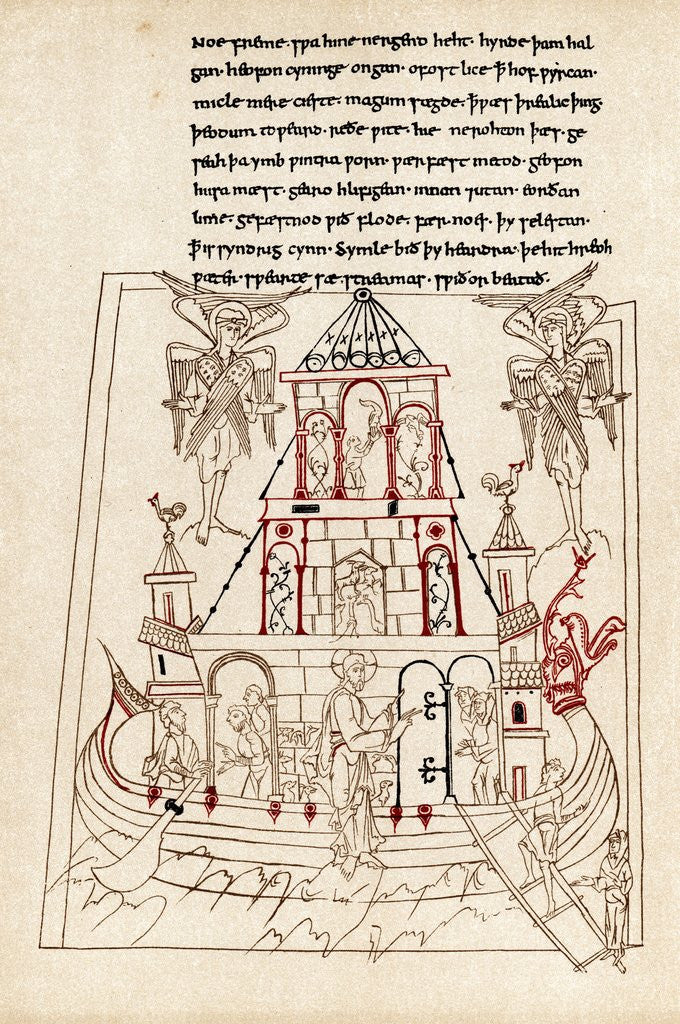 Noe freme· swa hine nergend heht· hyrde þam hal
gan· heofon cyninge ongan· ofost lice ꝥ hof wyrcan·
micle mere cieste· magum sægde· ꝥ wæs þrealic þing·
þeodum toweard· reðe wite· hie ne rohton þæs· ge
seah þa ymb wintra worn· wærfæst metod· geofon
husa mæst· gearo hlifigean· innan ⁊ utan· eorðan
lime· gefæstnod wið flode· fær noes· þy selestan·
ꝥ is syndrig cynn· Symle bið þy heardra· þe hit hreoh
wæter· swearte sæ streamas· swiðor beatað·